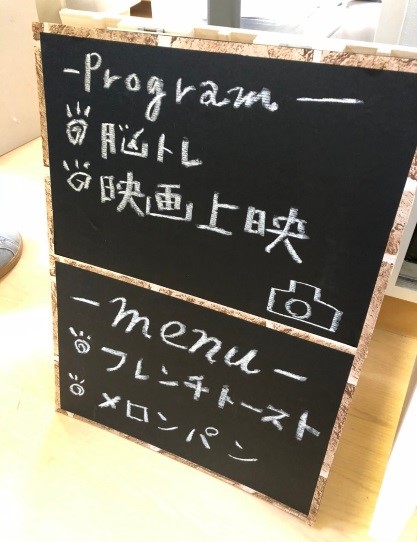 -Program—
脳トレ
映画上映
-menu-
フレンチトースト
メロンパン